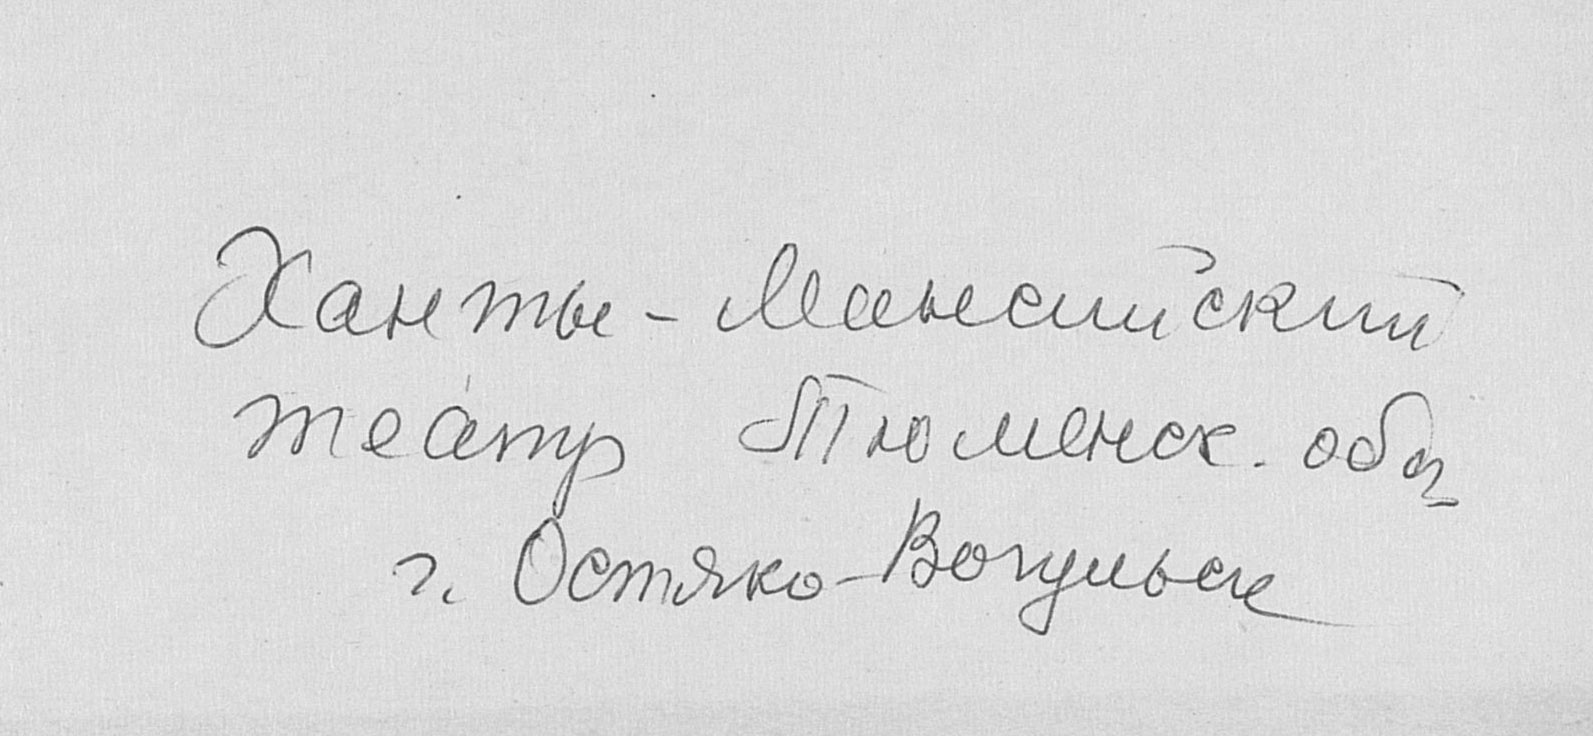 Ханты-Мансийский
театр Тюменск. обл
г. Остяко-Вогульск